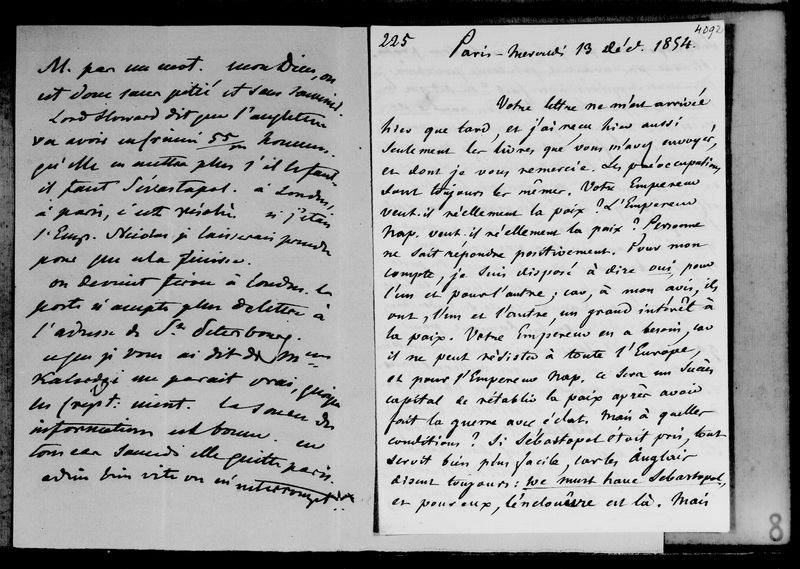 M. par un mot. mon Dieu, on
est donc sans pitié et sans
Lord Howard dit que l'angleterre
va avoir en 55 hommes.
qu'elle en mettra plus s'il le faut.
il faut Sévastopol. à Londres,
à paris, c'est résolu. si j'étais
l'Emp. Nicolas je laisserais prendre
pour que cela finisse.
on devient féroce à Londres. la
poste n'accepte plus de lettre à
l'adresse de St. Petersbourg.
ce que je vous ai dit de Mme
Kalerdgi me parait vrai, quoique
les nient. la source des
informations est bonne. en
tous cas samedi elle quitte paris.
adieu bien vite on m'interrompt.
225
4092
Paris - mercredi 13 déc. 1854.
Votre lettre ne m'est arrivée
hier que tard, et j'ai reçu hier aussi
seulement les livres que vous m'avez envoyés,
et dont je vous remercie. Les préoccupations
sont toujours les mêmes. Votre Empereur
veut-il réellement la paix? L'Empereur
Nap. veut-il réellement la paix? Personne
ne sait répondre positivement. Pour mon
compte, je suis disposé à dire oui, pour
l'un et pour l'autre; car, à mon avis, ils
ont, l'un et l'autre, un grand intérêt à
la paix. Votre Empereur en a besoin, car
il ne peut résister à toute l'Europe,
et pour l'Empereur Nap. ce sera un succès
capital de rétablir la paix après avoir
fait la guerre avec éclat. Mais à quelles
conditions? Si Sebastopol était pris, tout
serait bien plus facile, car les Anglais
disent toujours: we must have Sebastopol,
et pour eux, l'enclouûre est là. Mais
8